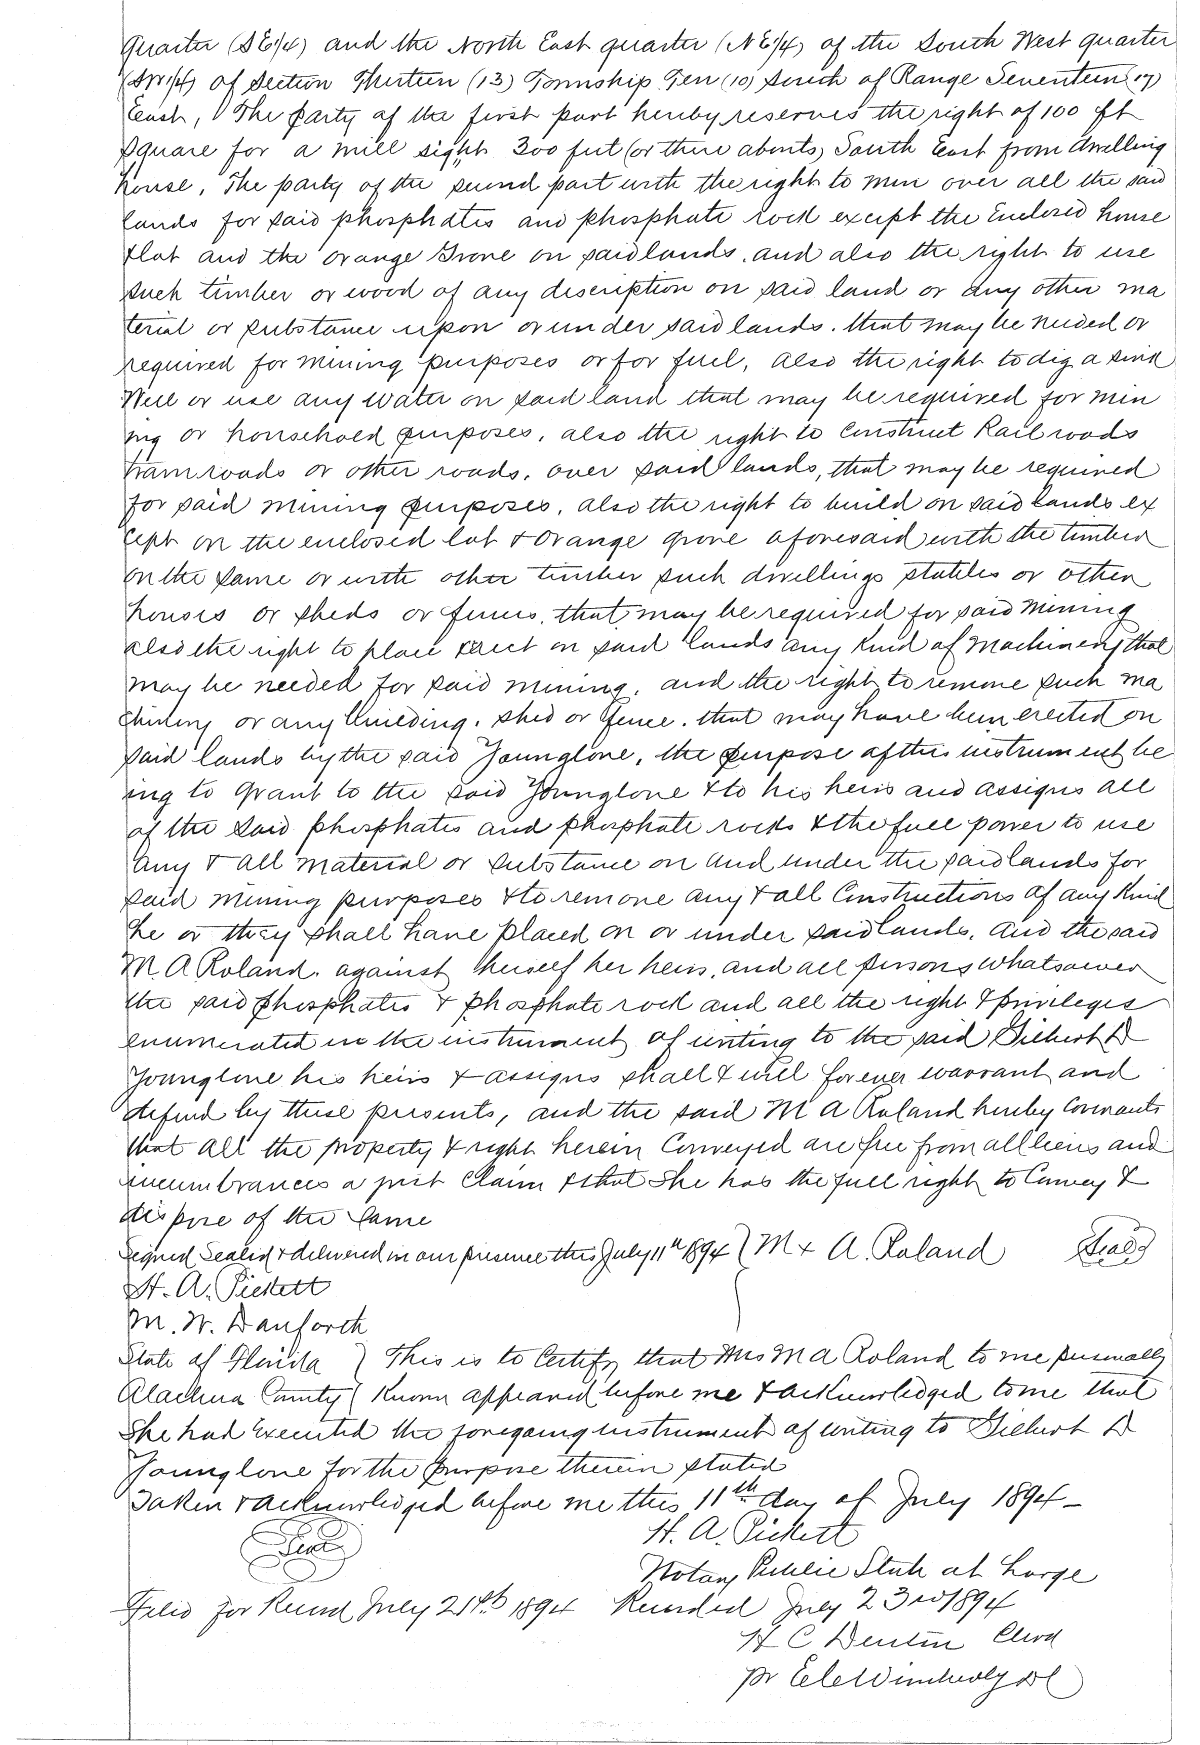 Quarter (SE1/4) and the North East quarter (NE1/4) of the South West quarter
(SW1/4) of Section Thirteen (13) Township Ten (10) South of Range Seventeen (17)
East, The party of the first part hereby reserves the right of 100 ft
square for a mill sight 300 feet (or there abouts) South East from dwelling
house. The party of the second part with the right to mine over all the said
lands for said phosphates and phosphate rock except the Enclosed house
flat and the orange Grove on said lands. and also the right to use
such timber or wood of any description on said land or any other ma
terial or substance upon or under said lands. that may be needed or
required for mining purposes or for fuel, also the right to dig a sink
Well or use any water on said land that may be required for min
ing or household purposes, also the right to Construct Rail roads
tram roads or other roads. over said lands, that may be required
for said mining purposes, also the right to build on said lands ex
cept on the enclosed lot & orange grove aforesaid with the timber
on the same or with other timber such dwellings stables or other
houses or sheds or fences. that may be required for said mining
also the right to place & erect on said lands any kind of Machinery that
may be needed for said mining, and the right to remove such ma
chinery or any building. shed or fence. that may have been erected on
said lands by the said Younglove, the purpose of this instrument be
ing to Grant to the said Younglove & to his heirs and assigns all
of the said phosphates and phosphate rocks & the full power to use
any & all material or substance on and under the said lands for
said mining purposes & to remove any & all Constructions of any kind
he or they shall have placed on or under said lands. and the said
M A Roland. against herself her heirs, and all persons whatsoever
the said phosphates & phosphate rock and all the right & privileges
enumerated in the instrument of writing to the said Gilbert D
Younglove his heirs & assigns shall & will forever warrant and
defend by these presents, and the said M A Roland hereby Covenants
that all the property & right herein Conveyed are free from all liens and
incumbrances a just Claim & that She has the full right to Convey &
dispose of the Same
Signed Sealed & delivered in our presence this July 11th 1894 } M x A. Roland Seal
H. A. Pickett
M. W. Danforth
State of Florida } This is to Certify that Mrs M A Roland to me personally
Alachua County { Known appeared before me & acknowledged to me that
She had Executed the foregoing instrument of writing to Gilbert D
Younglove for the purpose therein stated
Taken & acknowledged before me this 11th day of July 1894 -
H. A. Pickett
Seal
Notary Public State at Large
Filed for Record July 21st 1894 Recorded July 23rd 1894
H C Denton Clerk
pr E C Wimberly DC